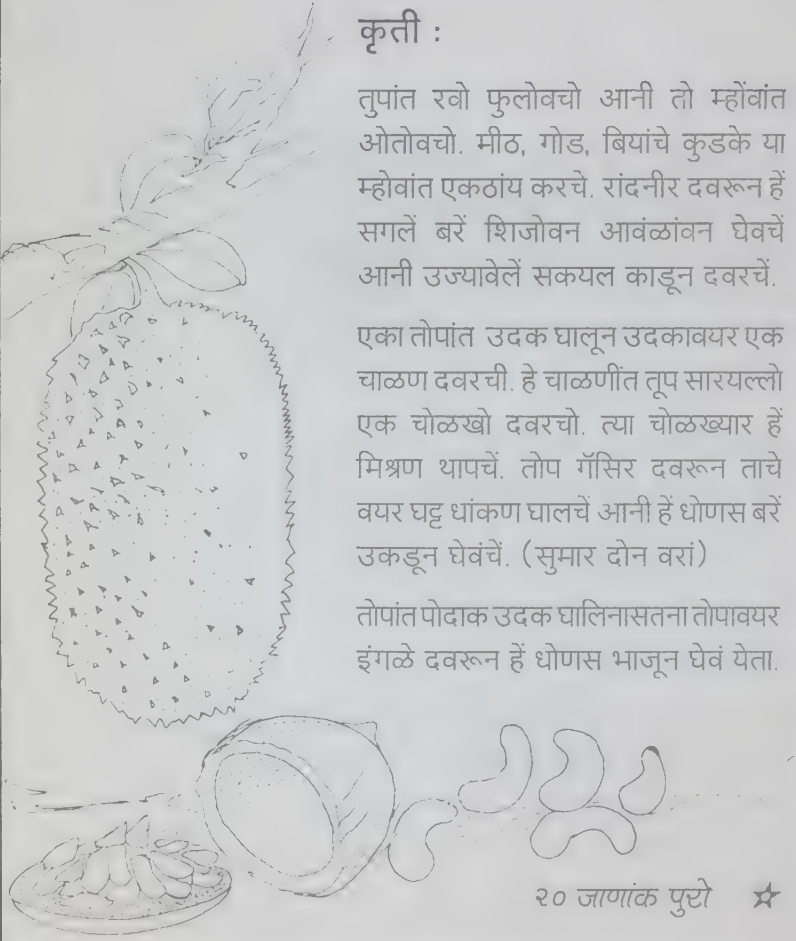 कृती :
तुपांत रवो फुलोवचो आनी तो म्होंवांत
ओतोवचो. मीठ, गोड, बियांचे कुडके या
म्होवांत एकठांय करचे. रांदनीर दवरून हें
सगलें बरें शिजोवन आवंळांवन घेवचें
आनी उज्यावेलें सकयल काडून दवरचें.
एका तोपांत उदक घालून उदकावयर एक
चाळण दवरची. हे चाळणींत तूप सारयल्लो
एक चोळखो दवरचो. त्या चोळख्यार हें
मिश्रण थापचें. तोप गॅसिर दवरून ताचे
वयर घट्ट धांकण घालचें आनी हें धोणस बरें
उकडून घेवंचें. (सुमार दोन वरां)
तोपांत पोंदाक उदक घालिनासतना तोपावयर
इंगळे दवरून हें धोणस भाजून घेवं येता.
२० जाणांक पुरो